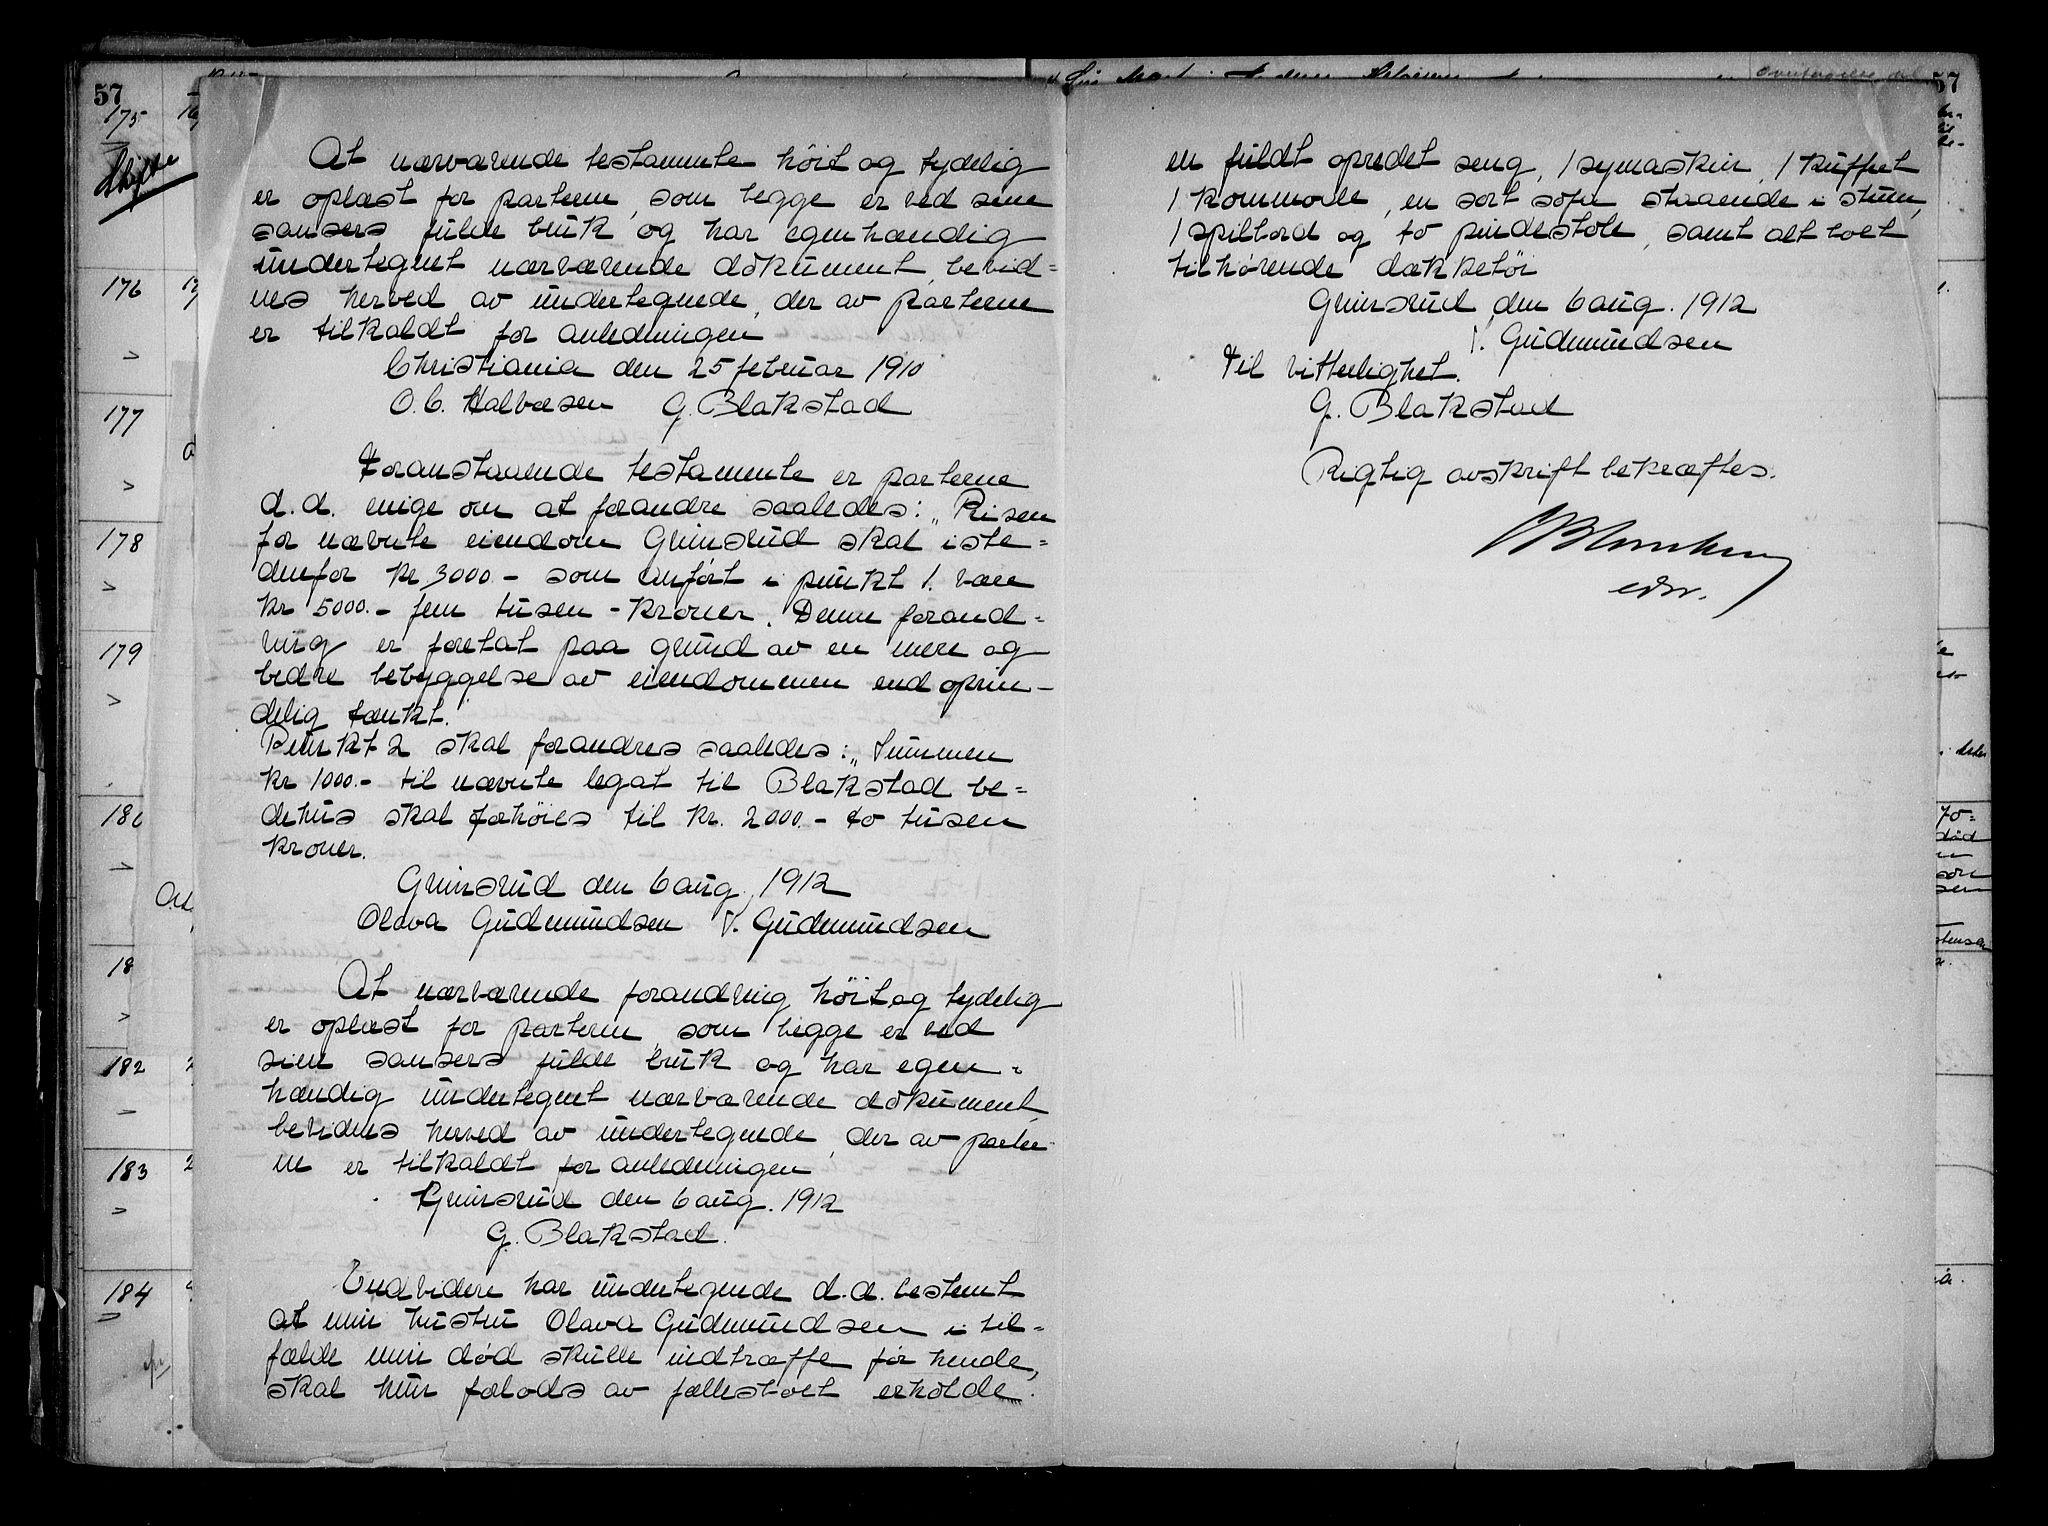 57
175
Skifte
176
177
178
179
182
183
184
At nærværende testamente höit og tydelig
er oplæst for parterne, som begge er ved sine
sansers fulde bruk og har egenhændig
undertegnet nærværende dokument, bevid=
nes herved av undertegnede, der av parterne
er tilkaldt for anledningen
Christiania den 25 februar 1910
O. C. Halvorsen G. Blakstad
Foranstaaende testamente er parterne
d.d. enige om at forandre saaledes: „Prisen
for nævnte eiendom Grinsrud skal iste=
denfor Kr 3000.- som anført i punkt 1. være
Kr 5000.- fem tusen - kroner. Denne forand=
ring er foretat paa grund av en mere og
bedre bebyggelse av eiendommen end oprin-
delig tænkt.
Punkt 2 skal forandres saaledes: „Summen
Kr 1000.- til nævnte legat til Blakstad be=
dehus skal forhöies til Kr. 2000.- to tusen
kroner.
Grinsrud den 6 aug. 1912
Olava Gudmundsen V. Gudmundsen
At nærværende forandring höit og tydelig
er oplæst for parterne, som begge er ved
sine sansers fulde bruk og har egen=
hændig undertegnet nærværende dokument,
bevidnes herved av undertegnede, der av parter-
ne er tilkaldt for anledningen
Grinsrud den 6 aug. 1912
G. Blakstad.
Endvidere har undertegnede d.d. bestemt
at min hustru Olava Gudmundsen i til=
fælde min død skulle indtræffe før hende,
skal hun forlods av fællesboet erholde.
57
en fuldt opredet seng, 1 symaskin, 1 kuffert
1 kommode, en sort sofa staaende i stuen,
1 spilbord og to pindestole, samt alt boet
tilhørende dækketöi
Grinsrud den 6 aug. 1912
V. Gudmundsen
Til vitterlighet.
G. Blakstad
Rigtig avskrift bekræftes.